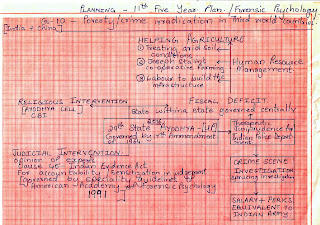 PLANNING - 11th Five Year Plan / Forensic Psychology
Poverty/crime in Third World Countries.
[India + China]
HELPING AGRICULTURE
① Treating arid Soil
Conditions
② Joseph Stalin's
co-operative farming
③ Labour to build the
infrastructure
Human Resource
Management.
RELIGIOUS INTERVENTION
[AYODHYA CELL]
CBI
FISCAL DEFICIT.
State within state governed centrally
29th State AYODHYA - [UP]
Governed by Amendment
of 1984
Therapeutic
Jurisprudence
Indian Police Depart
ment
JUDICIAL INTERVENTION:-
opinion of expert
clause 45 Indian Evidence Act
For accountability/sensitization in
[governed by speciality guidelines of
American - Academy of Forensic Psychology
1991
CRIME SCENE
INVESTIGATION
SALARY + PERKS
EQUIVALENT TO
INDIAN ARMY.